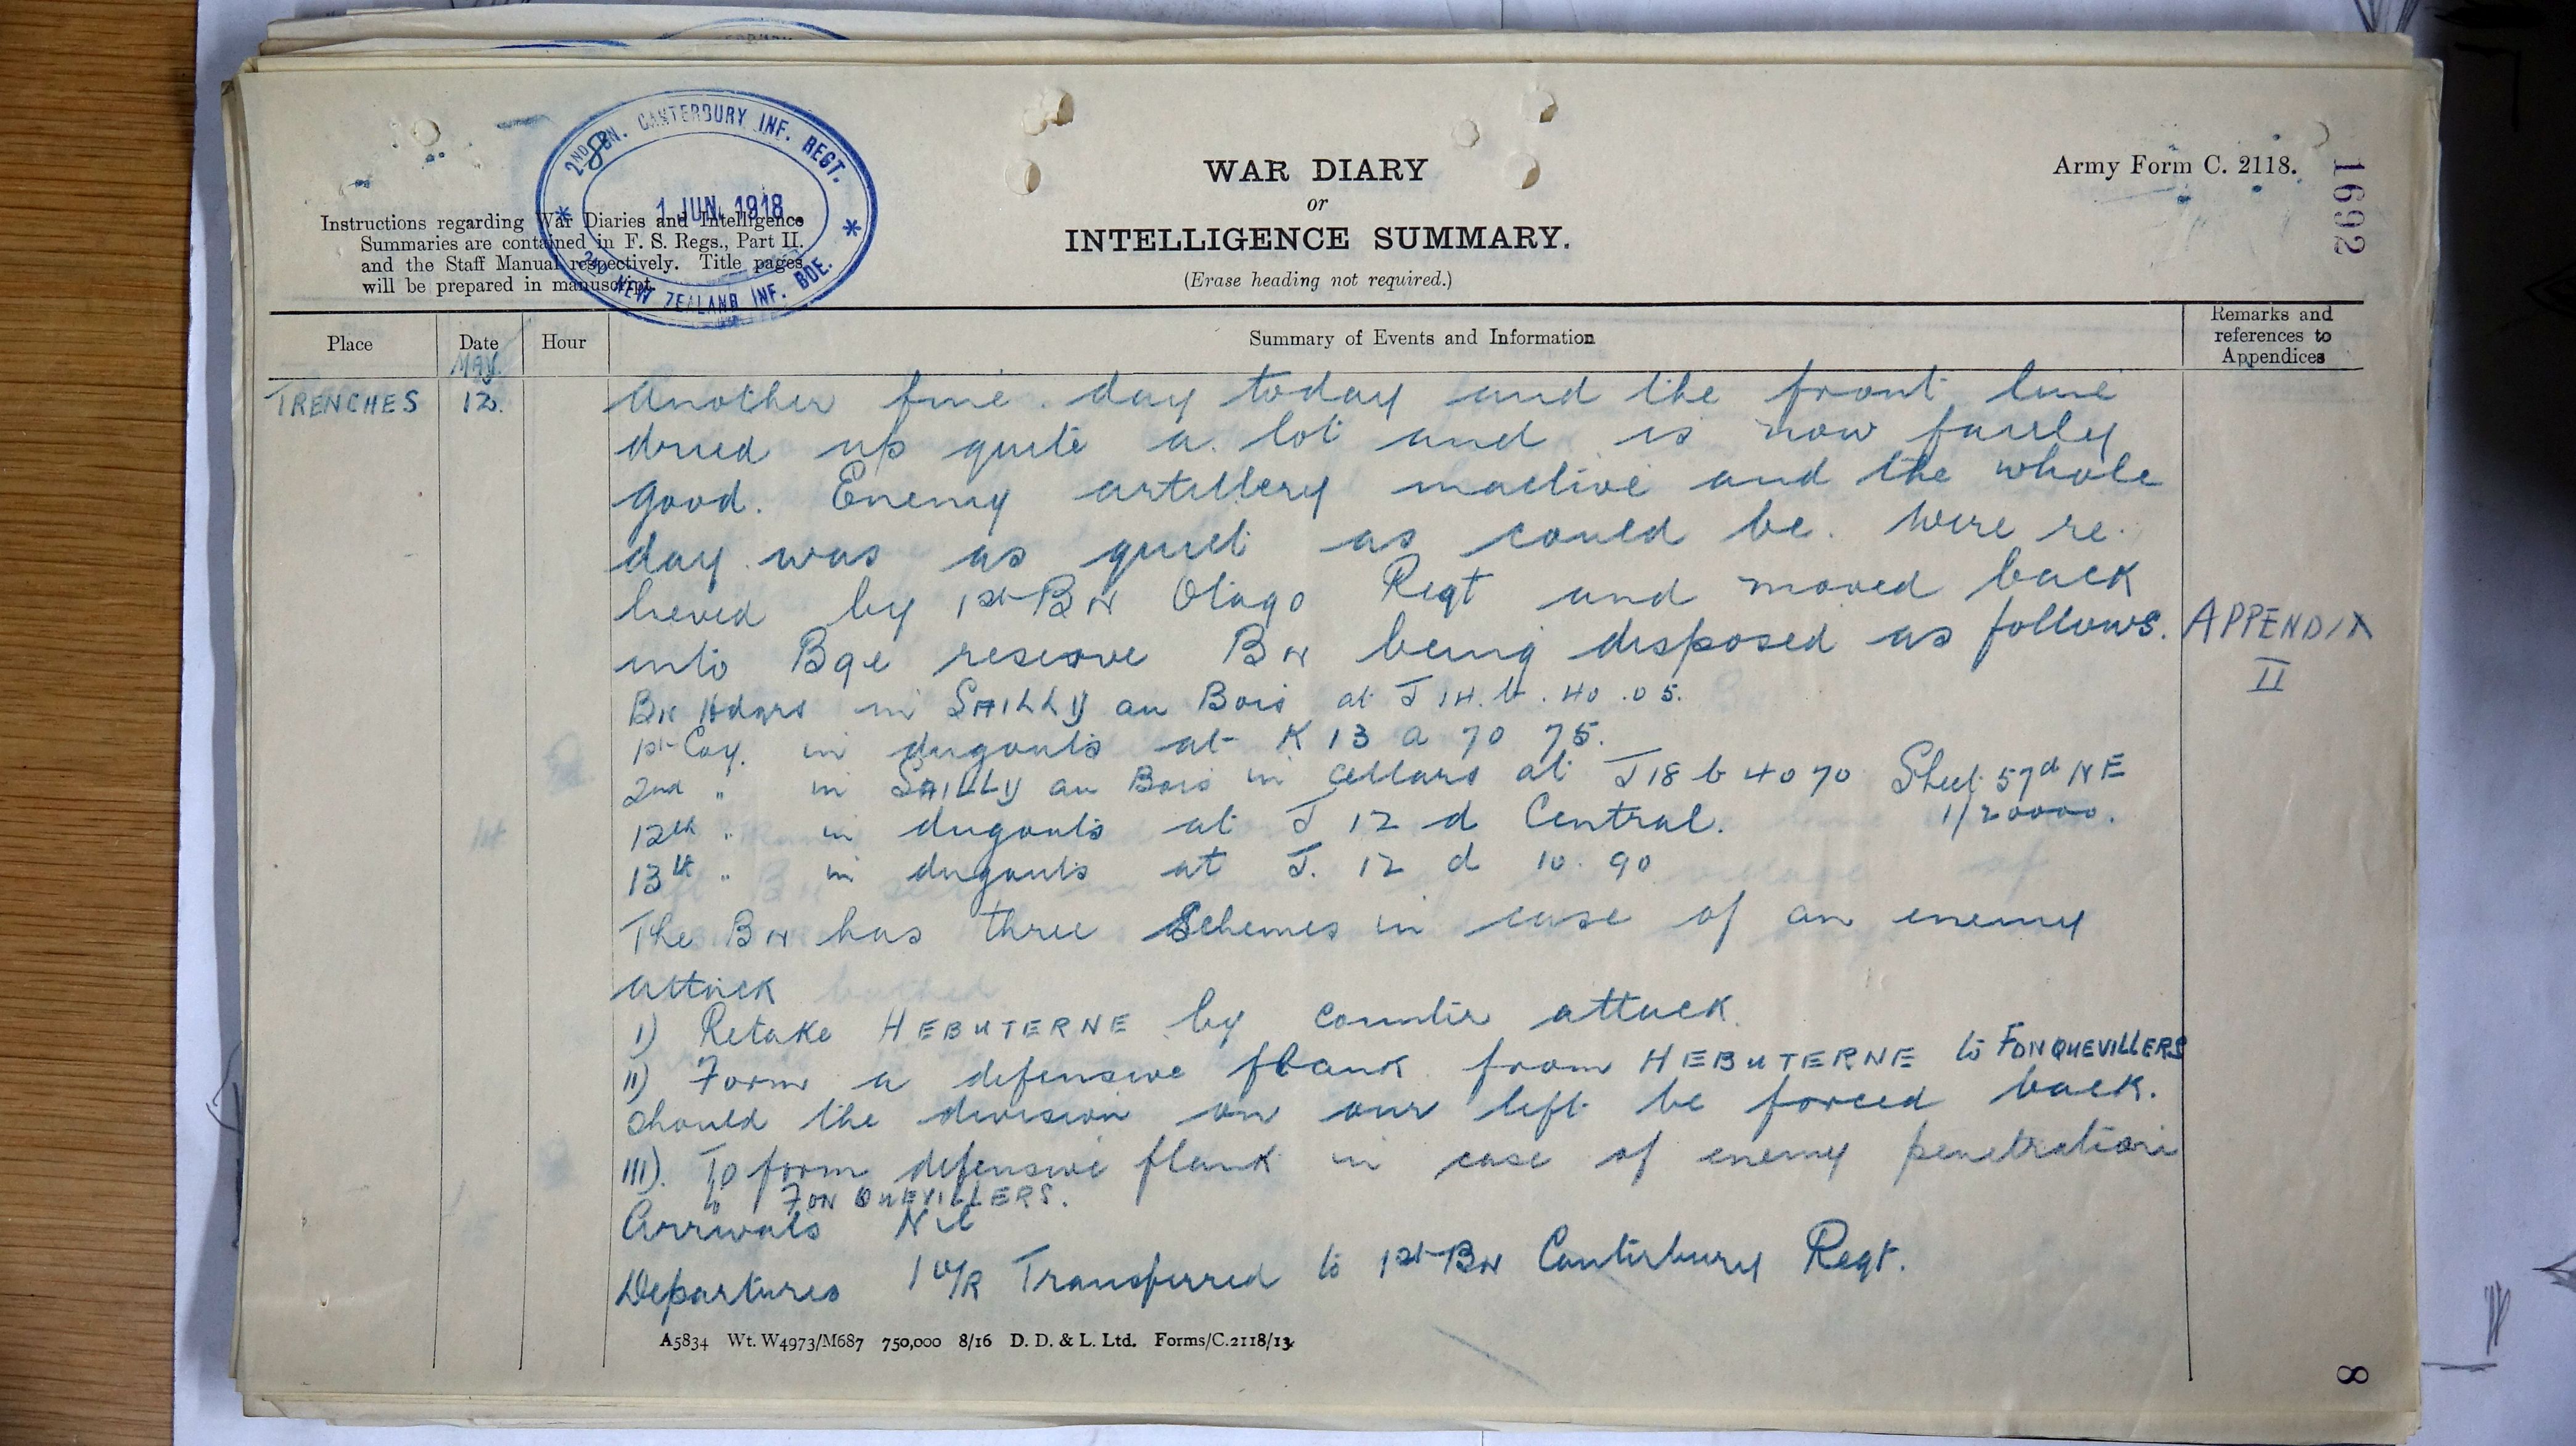 2ND BN. CANTERBURY INF. REGT.
8
1 JUN. 1918
2ND NEW ZEALAND INF. BDE.
Instructions regarding War Diaries and Intelligence
Summaries are contained in F. S. Regs., Part II.
and the Staff Manual respectively. Title pages
will be prepared in manuscript.
WAR DIARY
or
INTELLIGENCE SUMMARY.
(Erase heading not required.)
Army Form C. 2118.
1692
Place Date Hour Summary of Events and Information Remarks and references to Appendices
MAY.
TRENCHES 12. Another fine day today and the front line
dried up quite a lot and is now fairly
good. Enemy artillery inactive and the whole
day was as quiet as could be. Were re-
lieved by 1st BN Otago Regt and moved back
into Bge reserve BN being disposed as follows. APPENDIX
II
BN Hdqrs in SAILLY au Bois at J 14. b. 40 .05.
1st Coy. in dugouts at K 13 a 70 75.
2nd " in SAILLY au Bois in cellars at J 18 b 40 70 Sheet 57d NE
1/20000.
12th " in dugouts at J 12 d Central.
13th " in dugouts at J. 12 d 10. 90
The BN has three Schemes in case of an enemy
attack
I) Retake HEBUTERNE by counter attack.
II) Form a defensive flank from HEBUTERNE to FONQUEVILLERS
should the division on our left be forced back.
III). To form defensive flank in case of enemy penetration
to FONQUEVILLERS.
Arrivals Nil
Departures 1 O/R Transferred to 1st BN Canterbury Regt.
A5834 Wt. W4973/M687 750,000 8/16 D. D. & L. Ltd. Forms/C.2118/13.
8